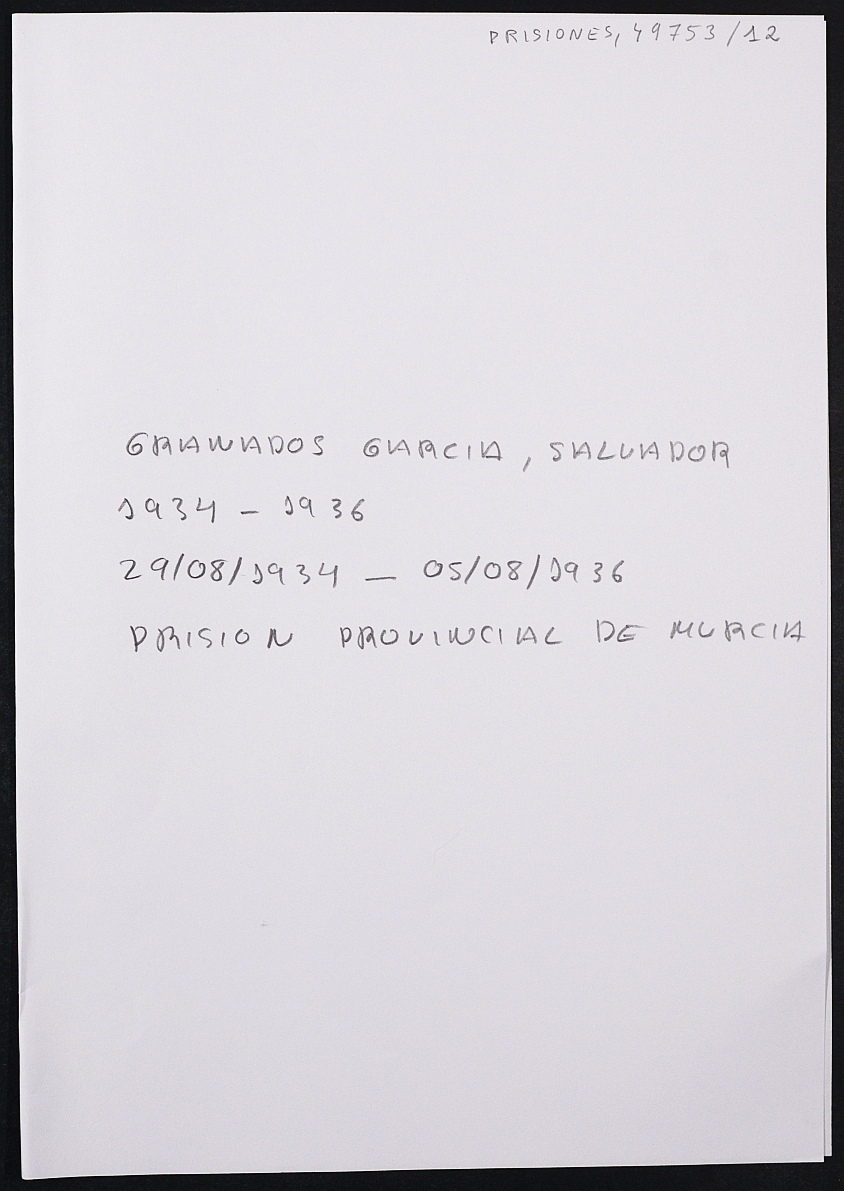 PRISIONES, 49753/12
GRANADOS GARCIA, SALVADOR
1934 - 1936
29/08/1934 - 05/08/1936
PRISION PROVINCIAL DE MURCIA